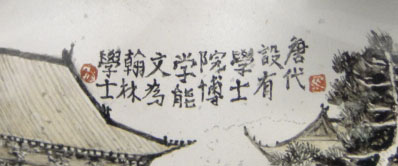 唐代
設有
學士
院博
学能
文為
翰林
學士